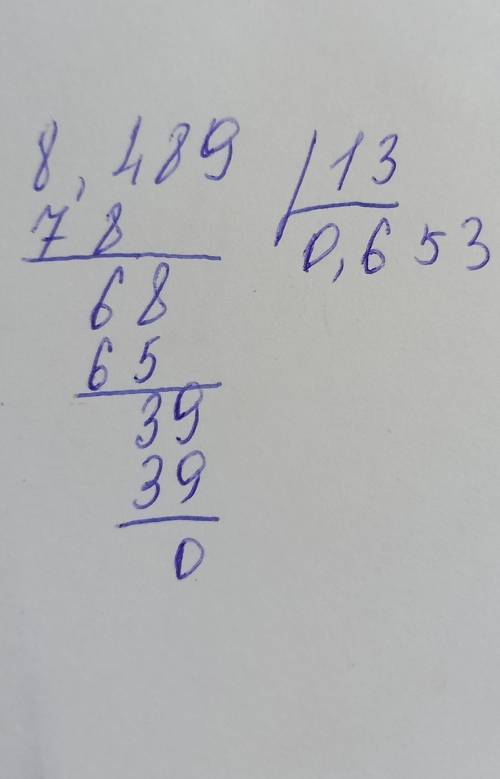 8,489 13
78 0,653
68
65
39
39
0